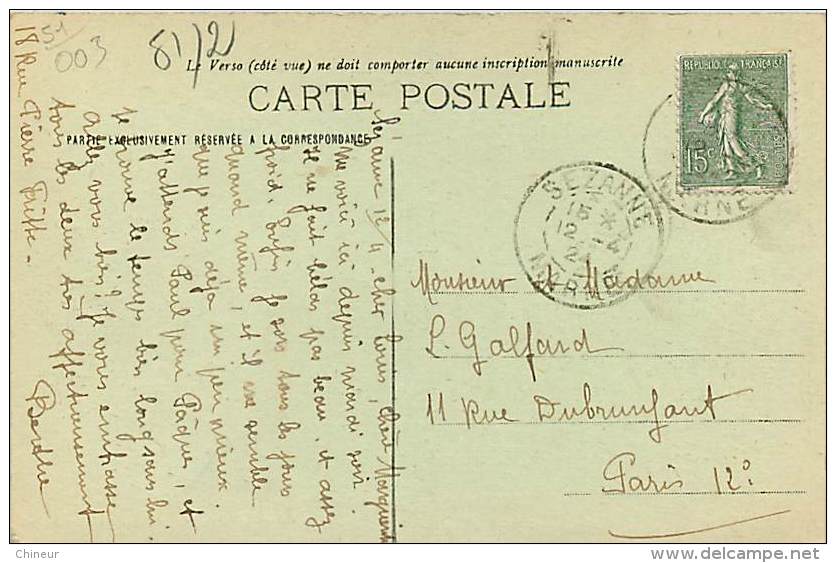 51/
003
81/2
Le Verso (côté vue) ne doit comporter aucune inscription manuscrite
CARTE POSTALE
PARTIE EXCLUSIVEMENT RÉSERVÉE A LA CORRESPONDANCE
REPUBLIQUE FRANÇAISE
15c
SEZANNE
MARNE
SEZANNE
15 *
12 -4
MARNE
Monsieur & Madame
L. Galfard
11 Rue Dubrunfaut
Paris 12e
Sézanne 12/4. Cher Louis, chère
Me voici ici depuis mardi soir
Il ne fait hélas pas beau, et assez
froid. Enfin je sors tous les jours
quand même, et il me semble
que je suis déjà un peu mieux.
J'attends Paul pour Pâques, et
trouve le temps bien long sans lui.
Allez vous bien? Je vous embrasse
tous les deux très affectueusement
Berthe
18 Rue Pierre
Chineur
www.delcampe.net